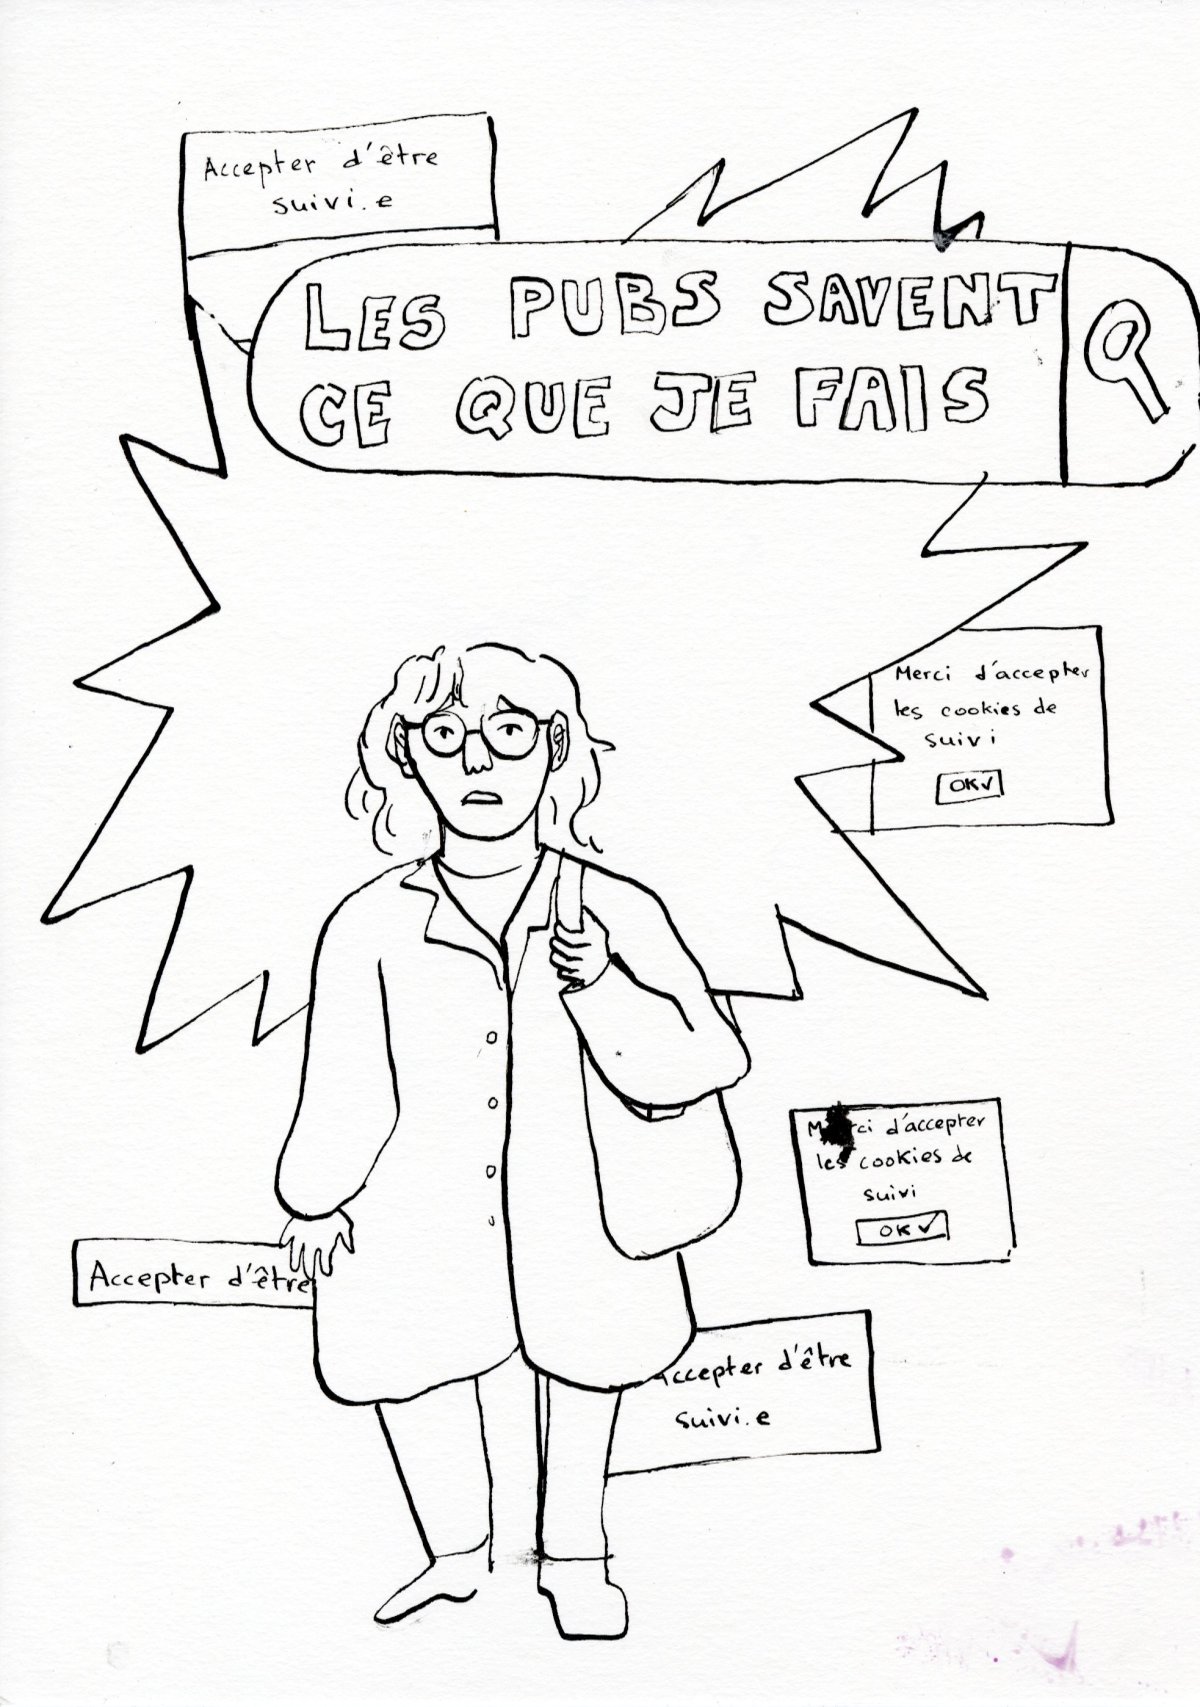 Accepter d'être
suivi.e
LES PUBS SAVENT
CE QUE JE FAIS
Merci d'accepter
les cookies de
suivi
OK✓
Merci d'accepter
les cookies de
suivi
OK✓
Accepter d'être
Accepter d'être
suivi.e